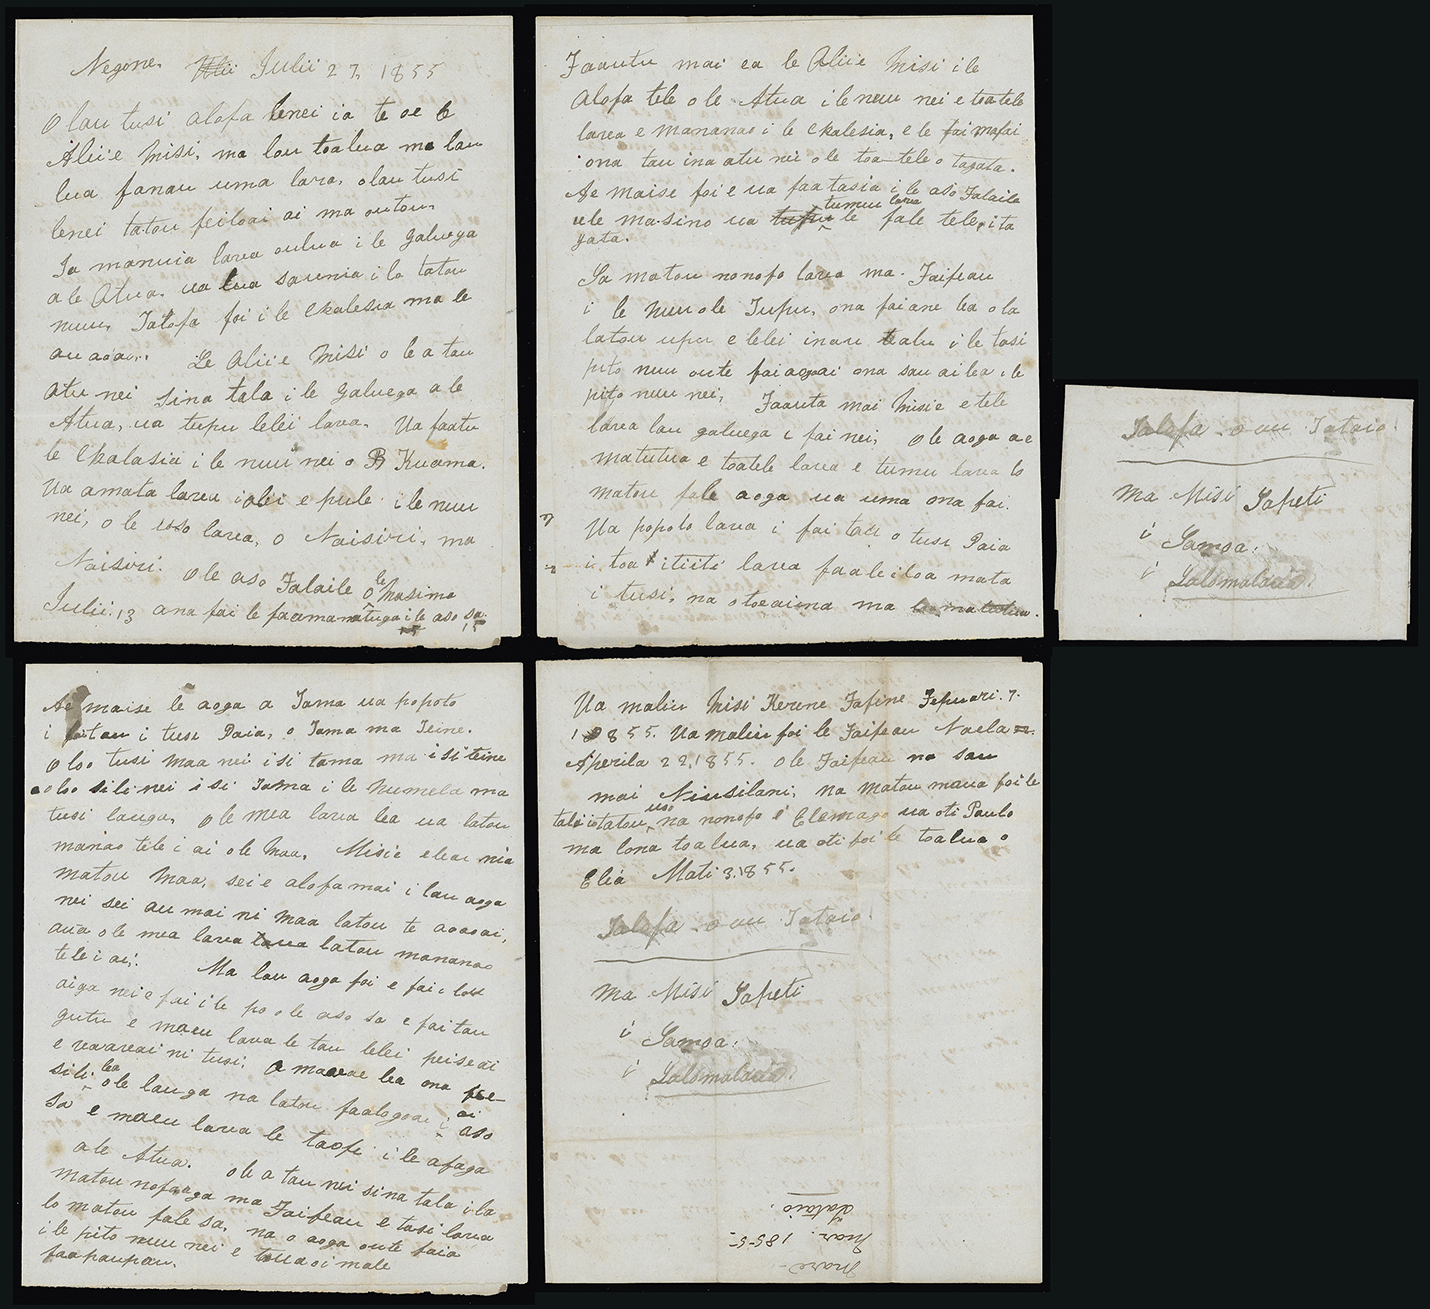 Negone. Julii 27, 1855
O lau tusi alofa lenei ia te oe le
Alii e Misi, ma lau toalua ma lau
lua fanau uma lava, o lau tusi
lenei tatou feiloai ai ma outou.
Ia manuia lava oulua i le galuega
a le Atua. ua lua saunia i lo tatou
nuu. Talofa foi i le Ekalesia ma le
au aoao. Le Alii e Misi o le a tau
atu nei sina tala i le galuega a le
Atua, ua tupu lelei lava. Ua faatu
le Ekalasia i le nuu nei o Kuama.
Ua amata lava i alii e pule i le nuu
nei, o le uso lava, o Naisiri, ma
Naisiri. O le aso Falaile o le Masima
Julii. 13 ana fai le faamanatuga i le aso sa
15
Faauta mai ea le Alii e Misi i le
Alofa tele o le Atua i le nuu nei e toatele
lava e mananao i le Ekalesia, e le faimafai
ona tau ina atu nei o le toa tele o tagata.
Ae maise foi e ua faatasia i le aso Falaile
ule masino ua tumu lava le fale tele, i ta
gata.
Sa matou nonofo lava ma Faifeau
i le Nuu ole Tupu, ona fai ane lea o la
latou upu e lelei inau te alu i le tasi
pito nuu oute faiaogai ona sau ai lea i le
pito nuu nei, Faauta mai Misi e e tele
lava lau galuega e fai nei, o le aoga a e
matutua e toatele lava e tumu lava lo
matou fale aoga ua uma ona fai.
Ua popoto lava i fai tau o tusi Paia
i toa itiiti lava faaleiloa mata
i tusi, na o toeaiina ma lo matutua.
Talofa o au Tataio!
Ma Misi Sapeti
i Samoa.
i Salomalava.
Ae maise le aoga a Tama ua popoto
i faitau i tusi Paia, o Tama ma Teine.
O loo tusi maa nei isi tama ma isi teine
o loo sili nei isi Tama i le Numela ma
tusi lauga, o le mea lava lea ua latou
manao tele i ai o le Maa, Misi e e leai nia
matou Maa, sei e alofa mai i lau aoga
nei sei au mai ni Maa latou te aoaoai,
aua o le mea lava latou mananao
tele i ai. Ma lau aoga foi e fai i lou
aiga nei e fai i le po o le aso sa e fai tau
gutu e maeu lava le tau lelei peiseai
e vaavaai ni tusi, o maeae lea ona pese
sili. lea o le lauga na latou faalogoai i ai aso
Sa e maeu lava le taofi i le afaga
a le Atua. o le a tau nei sina tala i la
matou nofaaga ma Faifeau e tasi lava
lo matou fale sa, na o aoga oute faia
i le pito nuu nei e toua oi male
faapaupau.
Ua maliu Misi Kerine Fafine Fepuari. 7.
1855. Ua maliu foi le Faifeau Naela
Aperila 22, 1855. O le Faifeau na sau
mai Niusilani, Na Matou maua foi le
tala i o tatou uso na nonofo i Elemago ua oti Paulo
ma lona toalua, ua oti foi le toalua o
Elia Mati 3. 1855.
Talofa o au Tataio!
Ma Misi Sapeti
i Samoa.
i Salomalava.
Mare
Mar. 1855
Tataio.